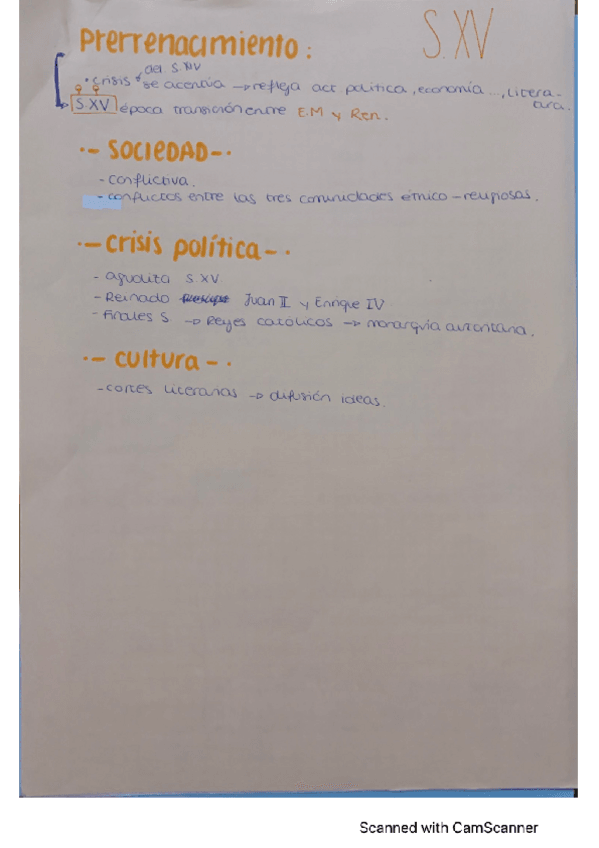 Prerrenacimiento :
S.XV
del S. XIV
• crisis se acentúa → refleja act. política, economía ..., litera-
tura.
S.XV época transición entre E.M y Ren.
·- SOCIEDAD-·
- conflictiva.
- conflictos entre las tres comunidades étnico-religiosas.
·- crisis política - ·
- agudiza S XV
- Reinado Juan II y Enrique IV
- Finales S. → Reyes católicos → monarquía autoritaria.
·- cultura - ·
- cortes literarias → difusión ideas.
Scanned with CamScanner